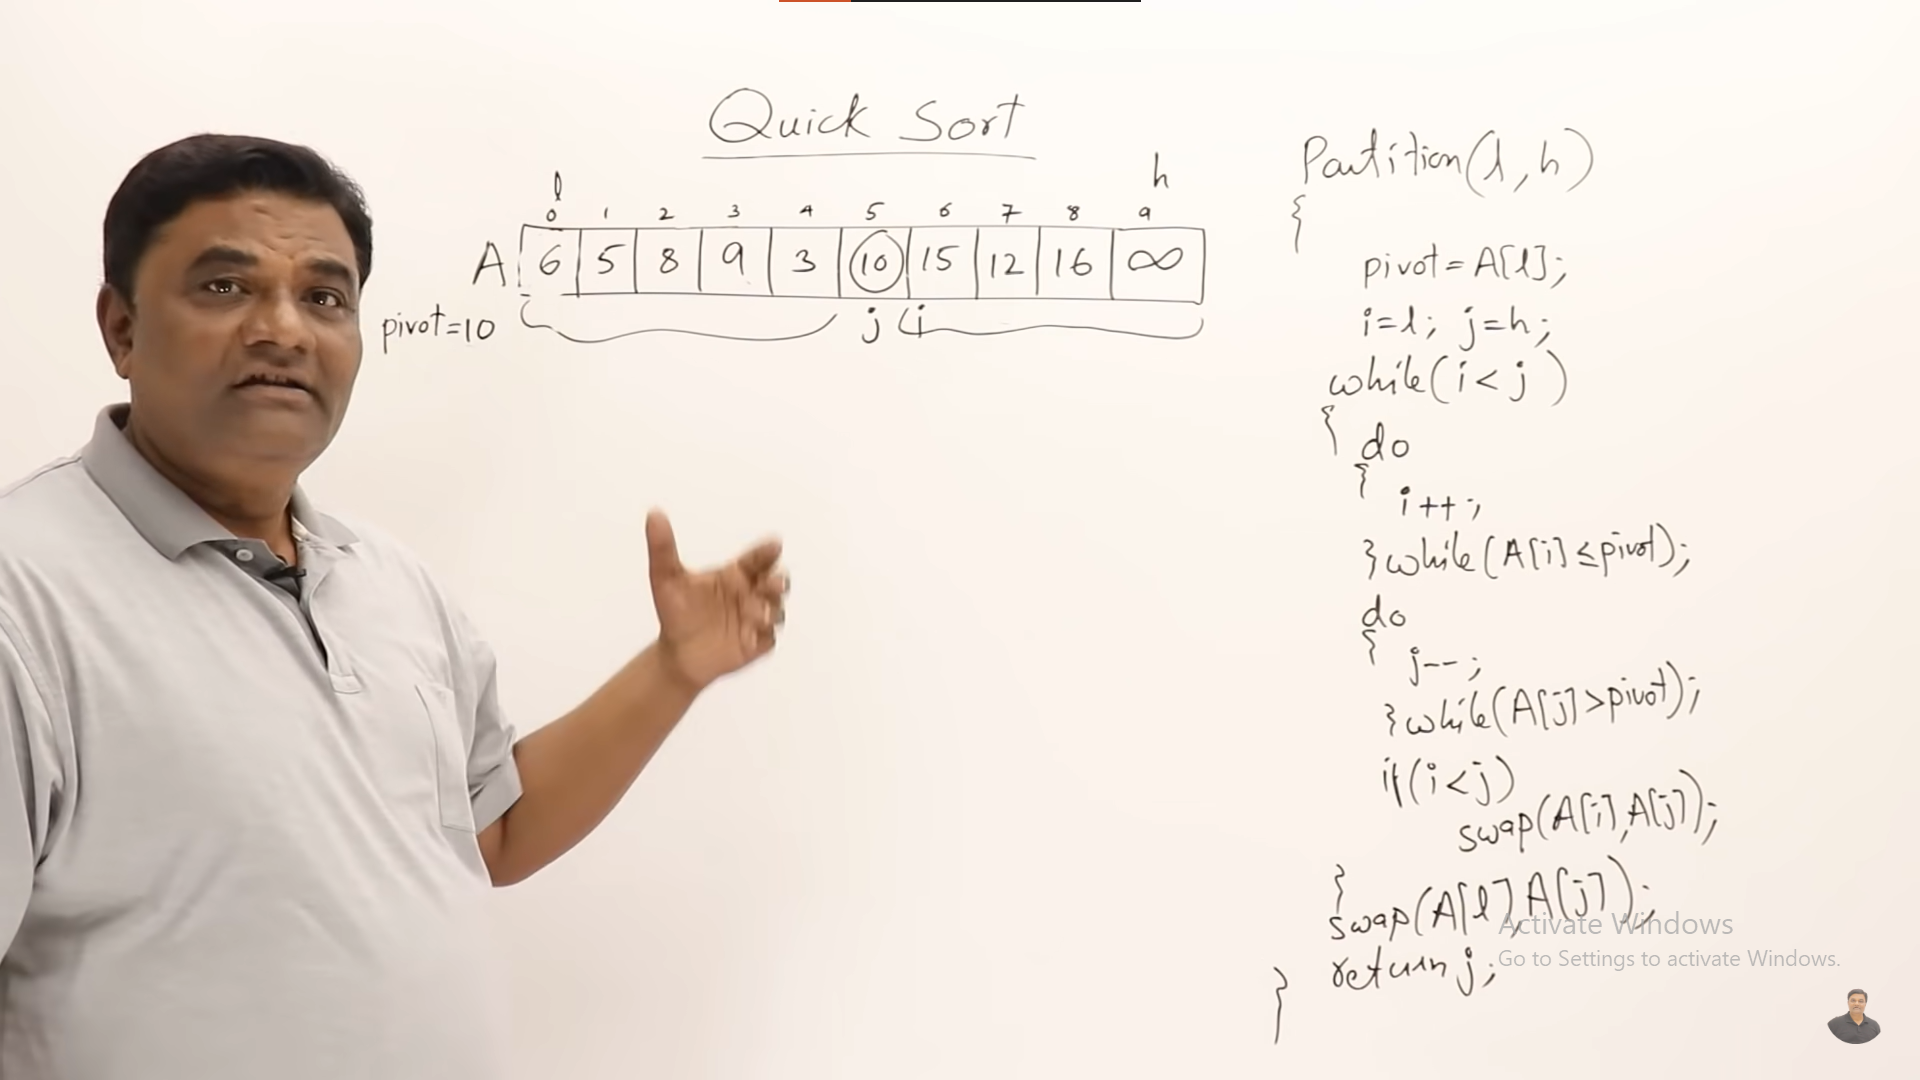 Quick Sort
l h
0 1 2 3 4 5 6 7 8 9
A 6 5 8 9 3 10 15 12 16 ∞
pivot=10 j i
Partition(l,h)
{
pivot=A[l];
i=l; j=h;
while(i<j)
{ do
{
i++;
}while(A[i]≤pivot);
do
{ j--;
}while(A[j]>pivot);
if(i<j)
swap(A[i],A[j]);
}
swap(A[l],A[j]);
return j;
}
Activate Windows
Go to Settings to activate Windows.